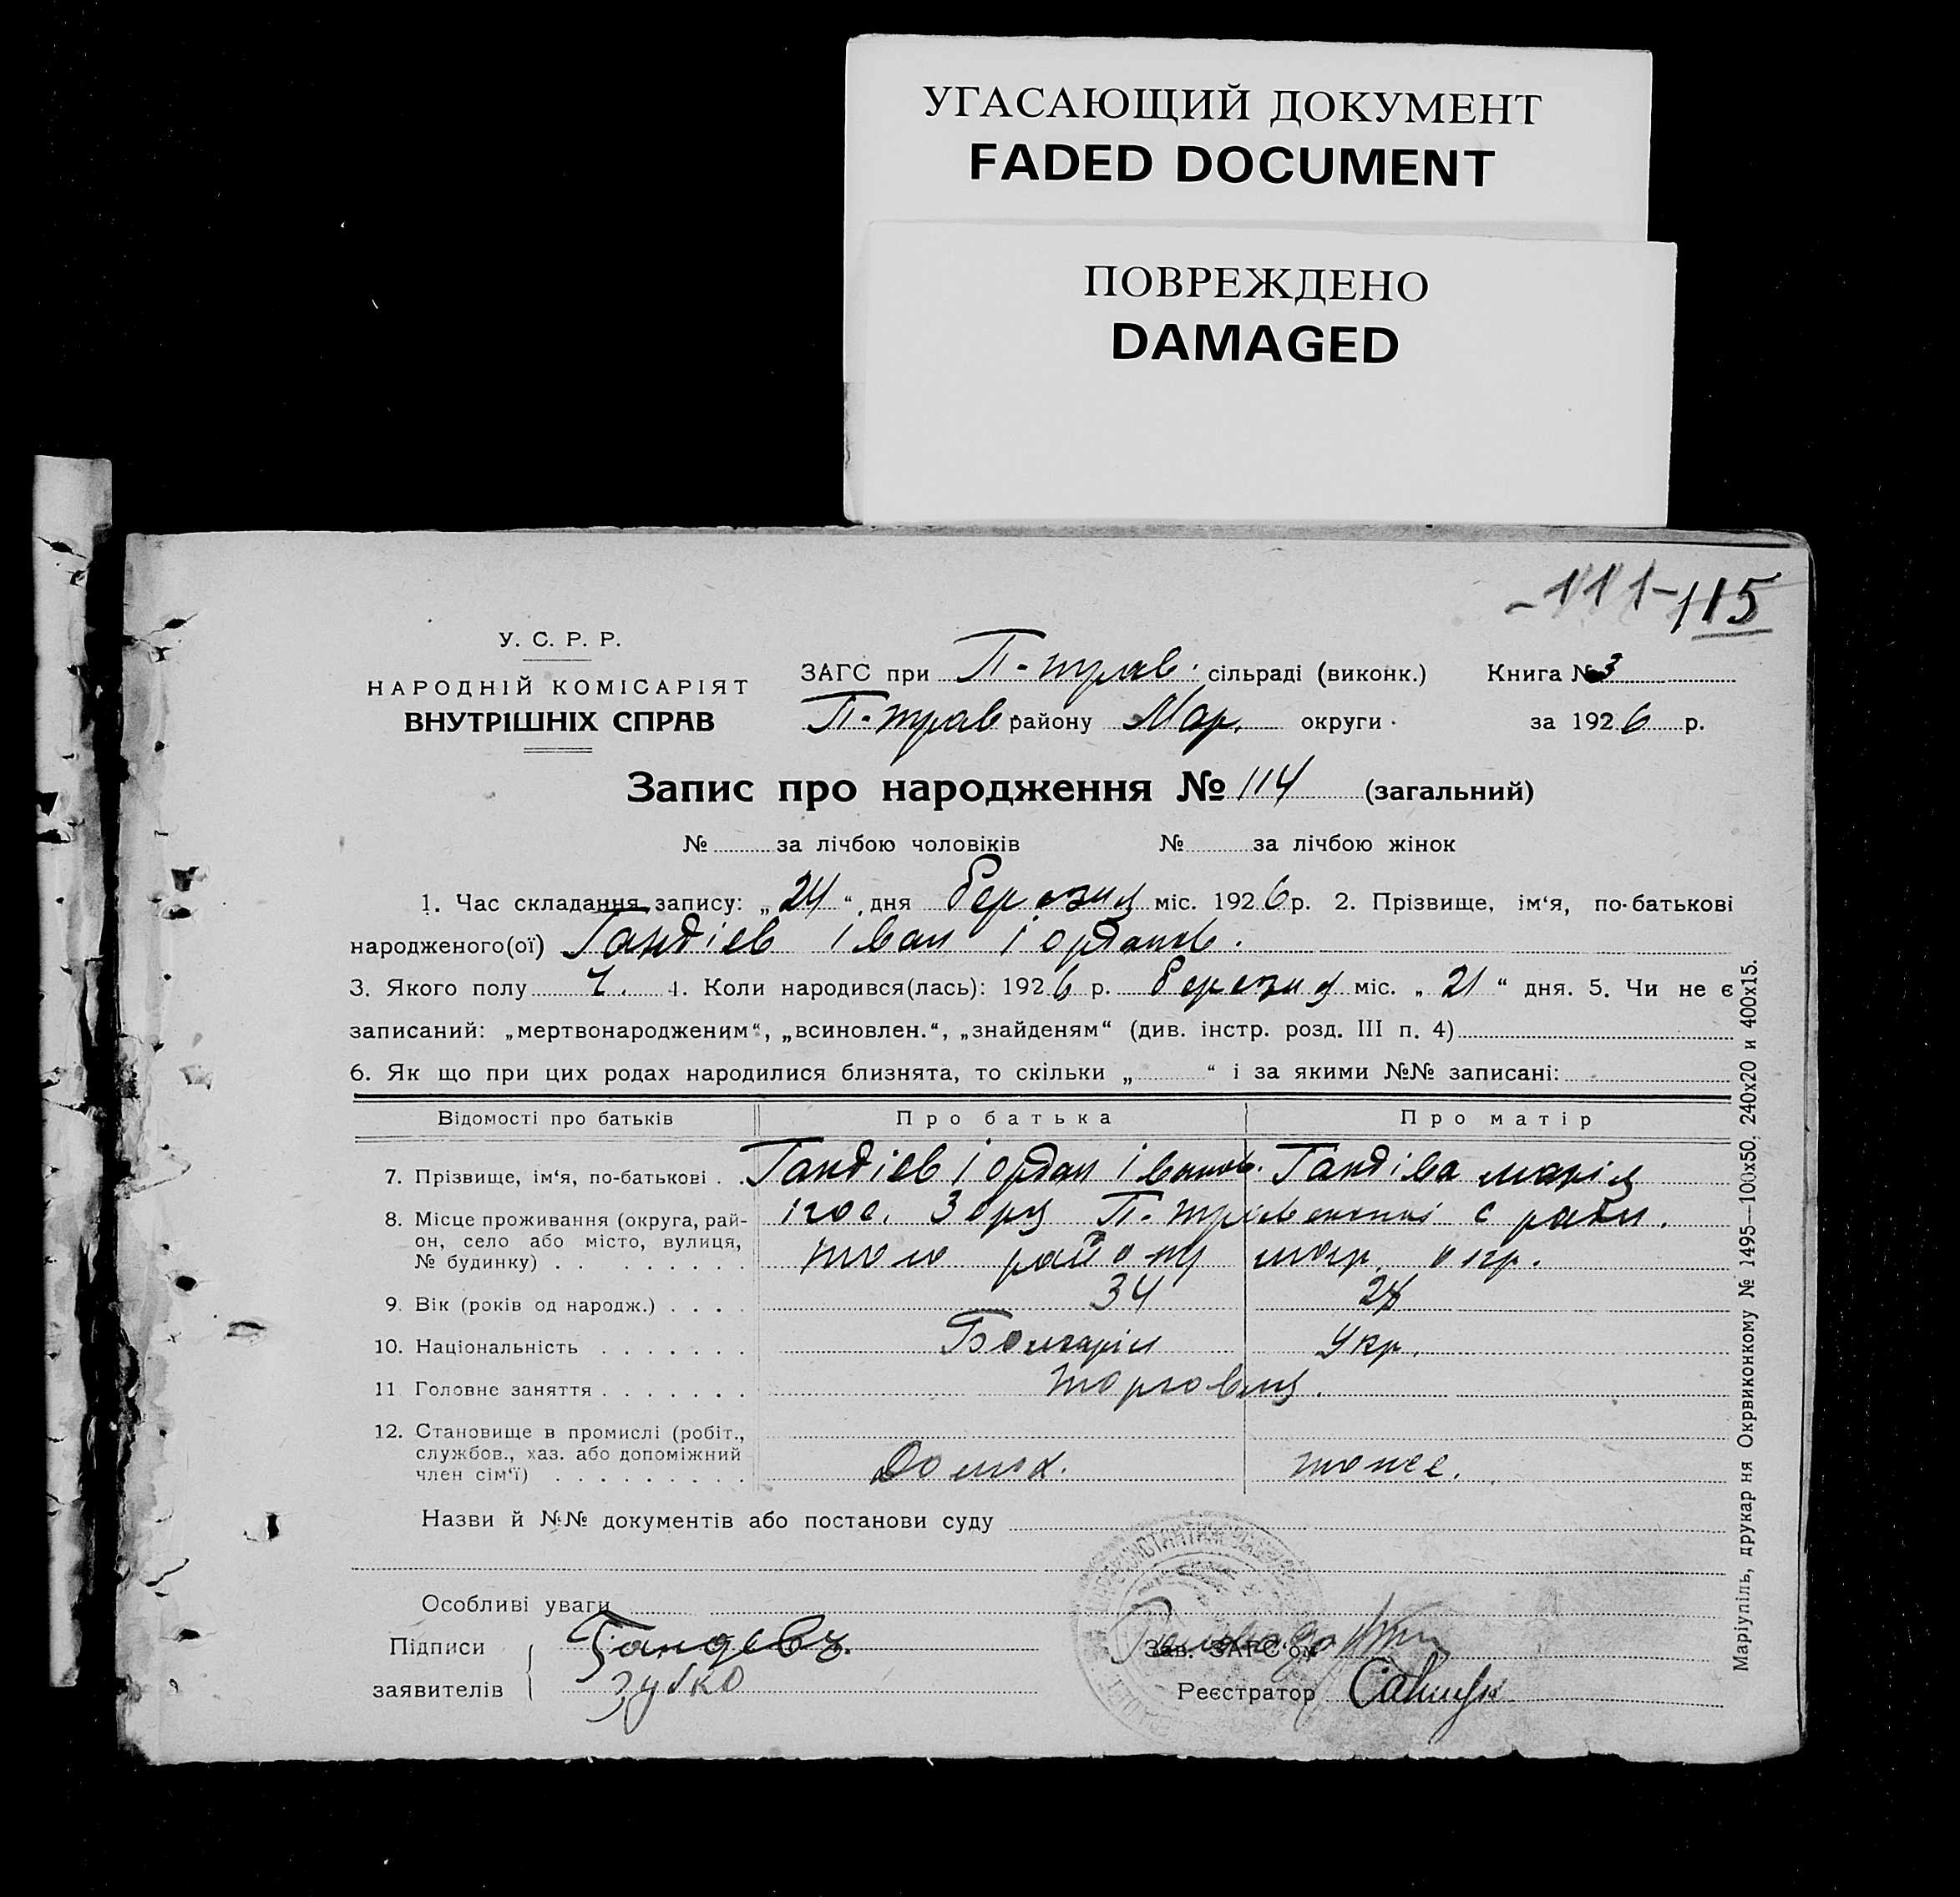 УГАСАЮЩИЙ ДОКУМЕНТ
FADED DOCUMENT
ПОВРЕЖДЕНО
DAMAGED
-111-115
У. С. Р. Р.
НАРОДНІЙ КОМІСАРІЯТ
ВНУТРІШНІХ СПРАВ
ЗАГС при П-трав. сільраді (виконк.) Книга № 3
П-трав району Мар. округи за 1926 р.
Запис про народження № 114 (загальний)
№ за лічбою чоловіків № за лічбою жінок
1. Час складання запису: „24“ дня березня міс. 1926 р. 2. Прізвище, ім‘я, по-батькові
народженого(ої) Гандієв Іван Іорданов.
3. Якого полу Ч. 4. Коли народився(лась): 1926 р. березня міс. „21“ дня. 5. Чи не є
записаний: „мертвонародженим“, „всиновлен.“, „знайденям“ (див. інстр. розд. III п. 4)
6. Як що при цих родах народилися близнята, то скільки „ “ і за якими №№ записані:
Відомості про батьків Про батька Про матір
7. Прізвище, ім‘я, по-батькові . . Гандієв Іордан Іванов. Гандієва Марія
8. Місце проживання (округа, рай- Зоря П-
он, село або місто, вулиця,
№ будинку) . . . . . . . . . району мар. окр.
9. Вік (років од народж.) . . . . 34 28
10. Національність . . . . . . . Болгарін Укр.
11 Головне заняття . . . . . . . торговля.
12. Становище в промислі (робіт.,
службов., хаз. або допоміжний
член сім‘ї) . . . . . . . . . тоже.
Назви й №№ документів або постанови суду
Особливі уваги
Підписи Гандевъ. Зав. ЗАГС‘ом
заявителів Зубко Реєстратор
Маріупіль, друкарня Окрвиконкому № 1495—100х50. 240х20 и 400х15.